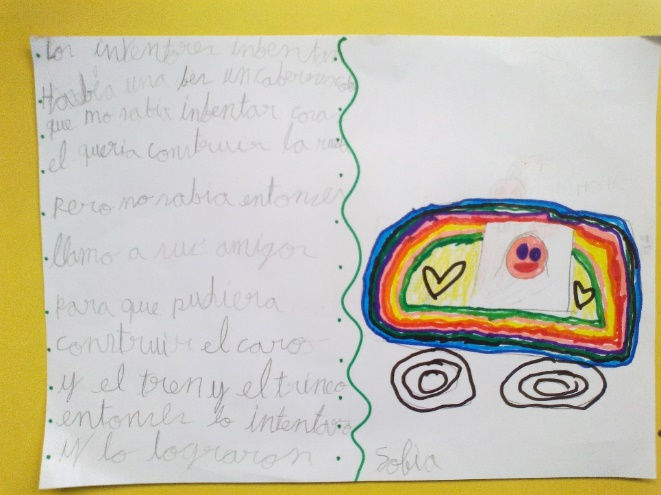 Los inventores inbentan
Había una bes un cabernicola
que no sabia inbentar cosas
el queria construir la rueda
pero no sabia entonses
llamo a sus amigos
para que pudiera
construir el caro
y el tren y el trineo
entonses lo intentaron
y lo lograron
Sobia